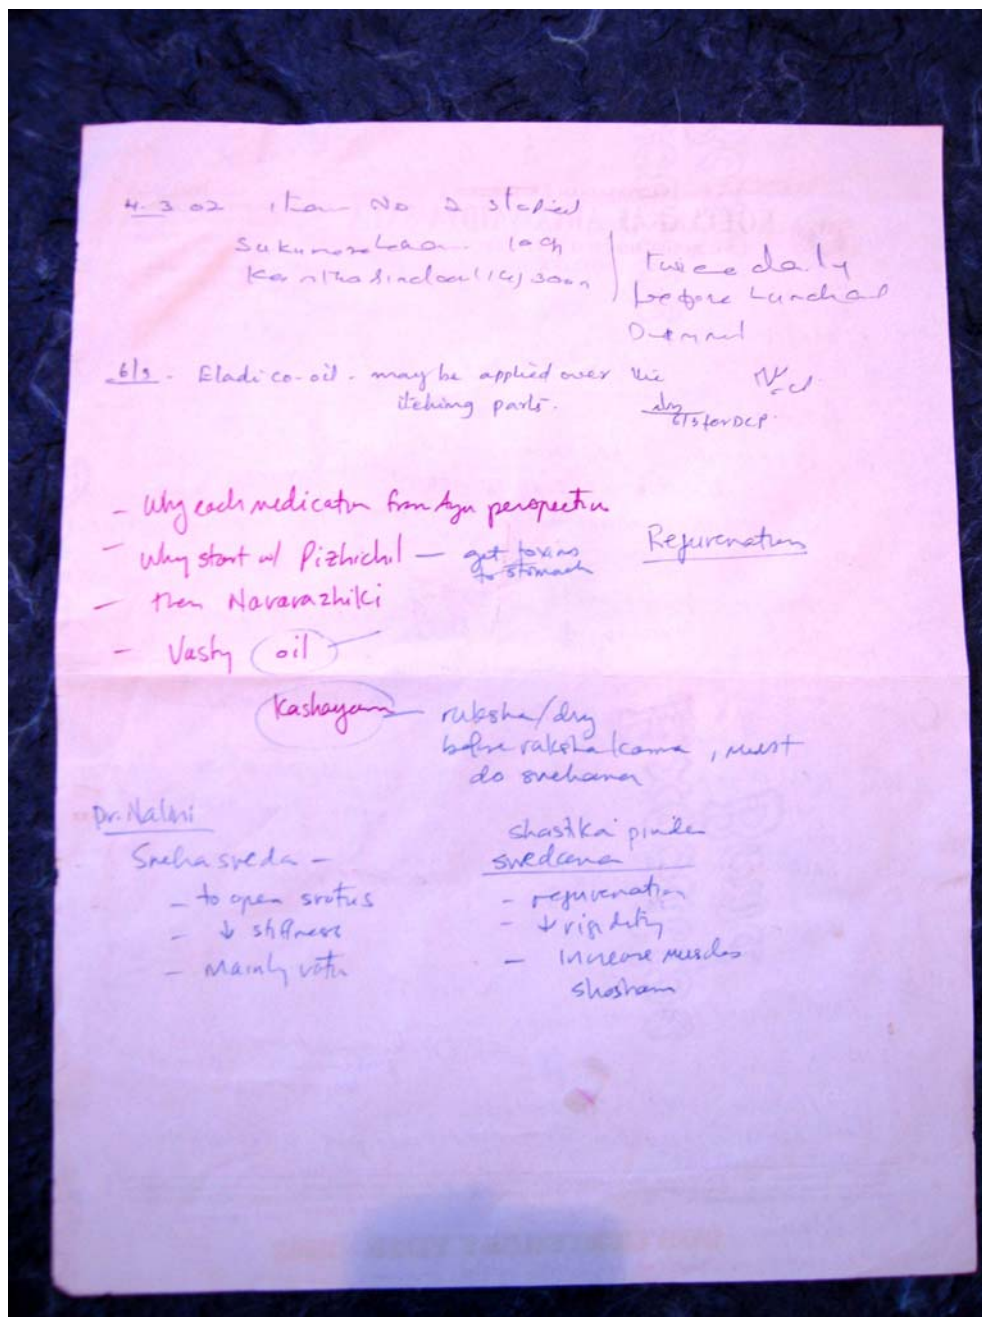 4.3.02 Item No 2 stopped
Sukumara 10g
twice daily
before Lunch and
Dinner
6/3 - Eladi co-oil - may be applied over the
itching parts.
6/3 for DCP.
- Why each medication from Ayu perspective
- Why start w/ Pizhichil — get toxins
to stomach
Rejuvenation
- then Navarazhiki
- Vasty oil
Kashayam — ruksha/dry
before ruksha karma, must
do snehana
Dr. Nalini
Sneha sveda -
- to open srotus
- ↓ stiffness
- Mainly vata
shastika pinda
swedana
- rejuvenation
- ↓ rigidity
- Increase muscles
shosham